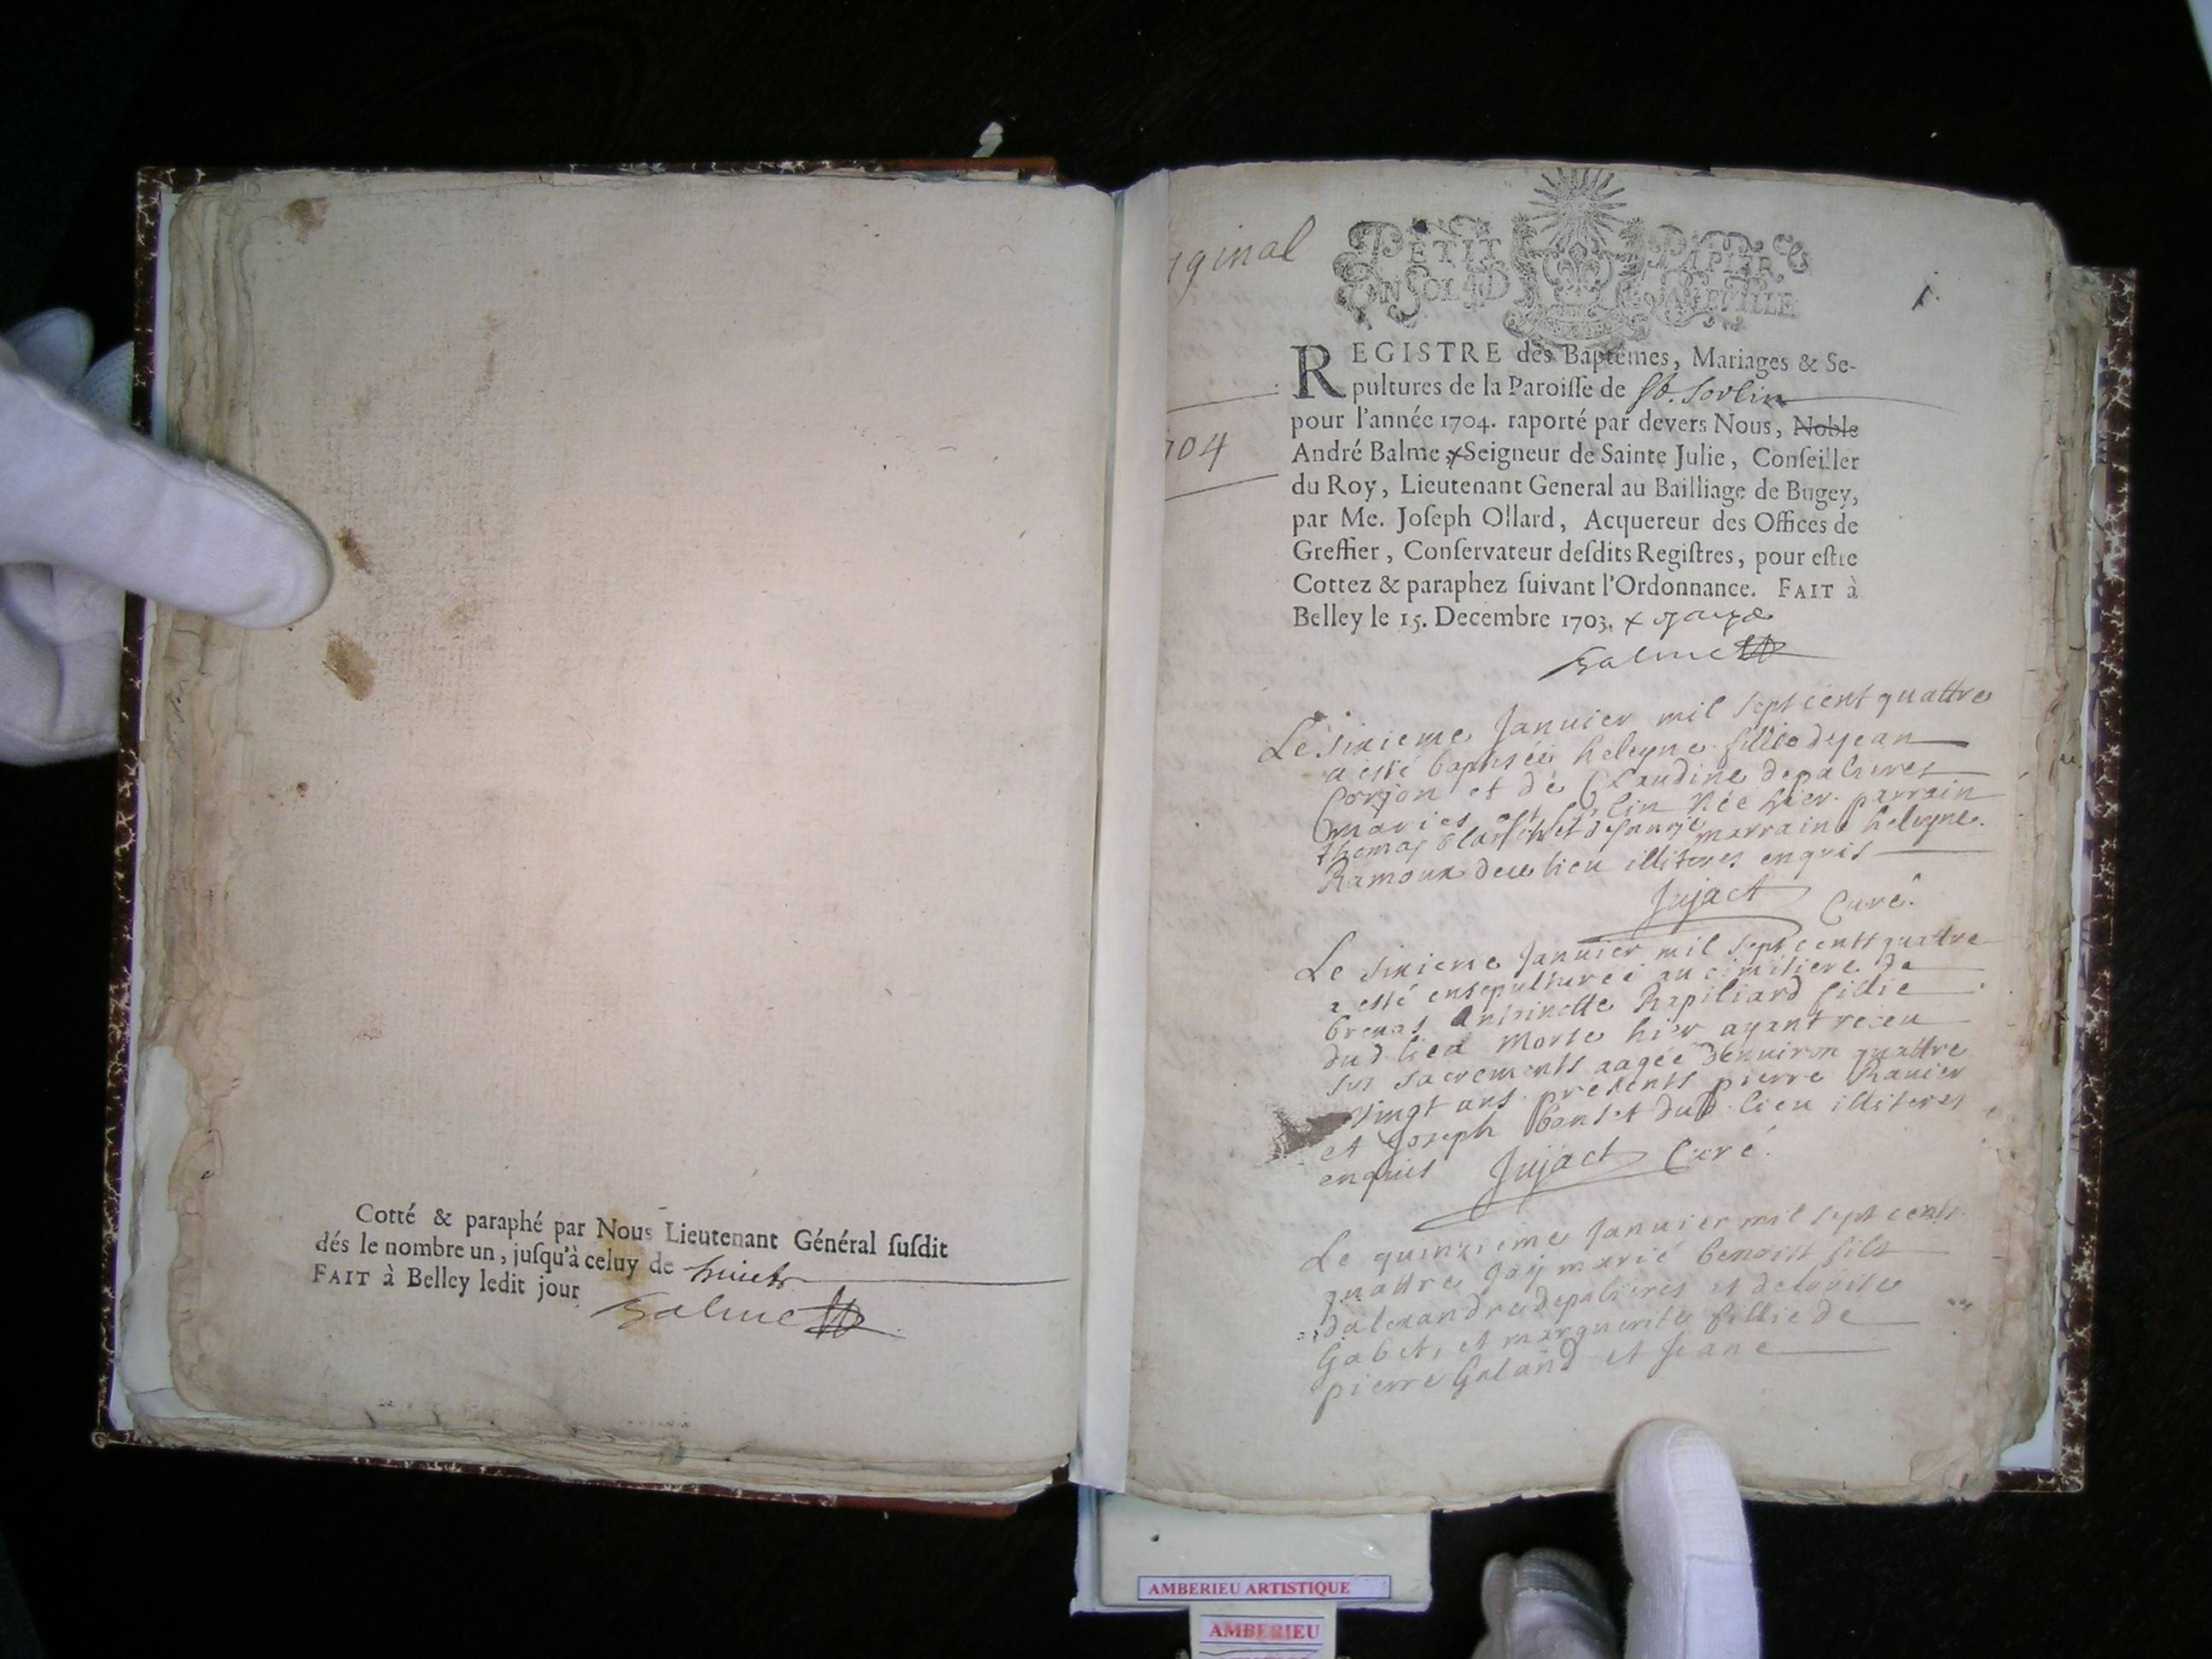 Cotté & paraphé par Nous Lieutenant Général ſuſdit
dés le nombre un, juſqu'à celuy de huict
FAIT à Belley ledit jour
Balme
iginal
704
PETIT PAPIER
UN SOL LA FEUILLE
1.
REGISTRE des Baptêmes, Mariages & Se-
pultures de la Paroiſſe de St. Sorlin
pour l'année 1704. raporté par devers Nous, Noble
André Balme, Seigneur de Sainte Julie, Conſeiller
du Roy, Lieutenant General au Bailliage de Bugey,
par Me. Joſeph Ollard, Acquereur des Offices de
Greffier, Conſervateur deſdits Regiſtres, pour eſtre
Cottez & paraphez ſuivant l'Ordonnance. FAIT à
Belley le 15. Decembre 1703.
Balme
Le sixieme Januier mil sept cent quattre
a esté baptisée heleyne fillie de jean
Corjon et de Claudine depalieres
maries St Sorlin née hier. parrain
thomas marraine heleyne
Ramoux de ce lieu illiteres enquis
Jujact Curé.
Le sixieme Januier mil sept cents quattre
a esté ensepulturée au cimitiere de
brenas Antoinette Rapiliard fillie
dud. lieu morte hier ayant receu
ses sacrements aagée denuiron quattre
vingt ans. presents pierre Rauier
et Joseph bonset dud. lieu illiteres
enquis Jujact Curé.
Le quinzieme Januier mil sept cents
quattre jay marié benoist fils
dalexandre depalieres et de loüise
Gabet, et marguerite fillie de
pierre Galand et Jeane
AMBERIEU ARTISTIQUE
AMBERIEU